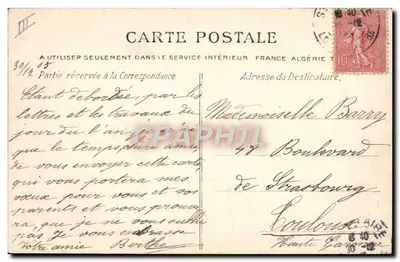 III
CARTE POSTALE
A UTILISER SEULEMENT DANS LE SERVICE INTÉRIEUR FRANCE ALGÉRIE
30/12 05
Partie réservée à la Correspondance
Adresse du Destinataire.
Étant débordée, par les
lettres et les travaux du
jour du l'an
que le temps
de vous envoyer cette carte
qui vous portera mes
vœux pour vous et vos
parents et vous prouve
ra, que je ne vous oublie
pas Je vous embrasse
Votre amie Berthe
Mademoiselle Barry
47 Boulevard
de Strasbourg
Toulouse
Haute Garonne
10
CPAPHIL.COM